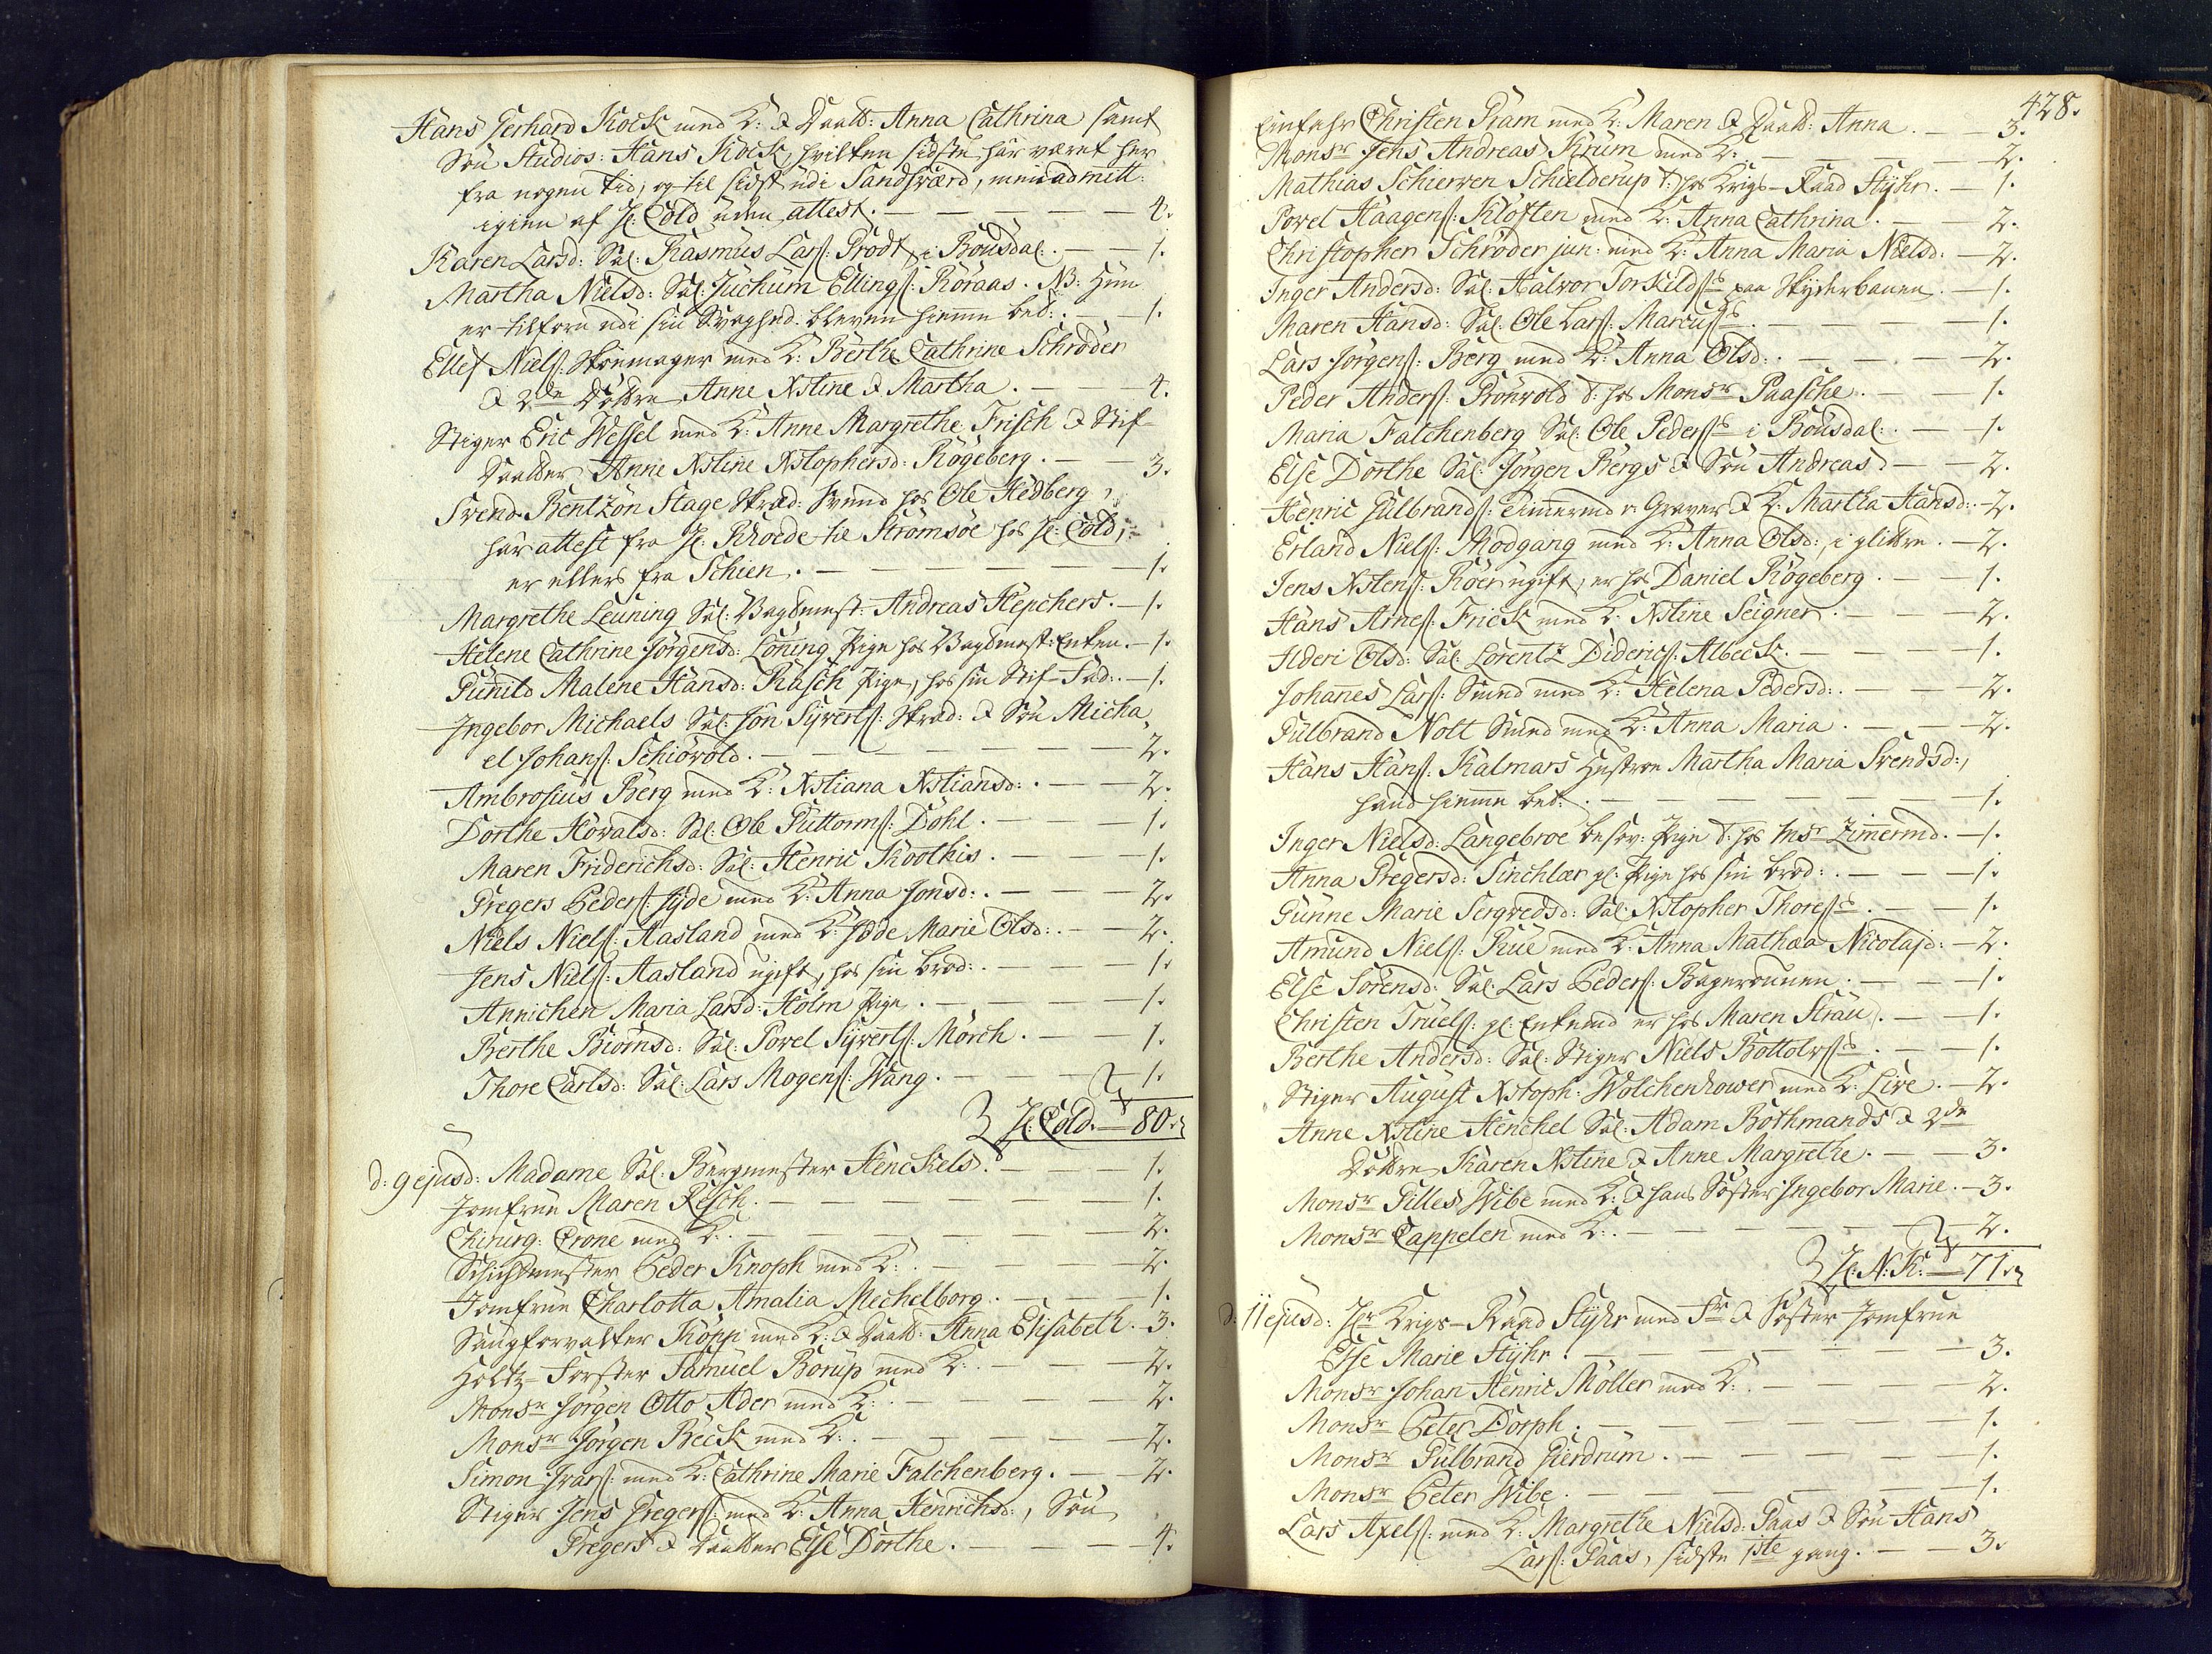 Hans Gerhard Kock med K: & Daatt: Anna Cathrina samt
Søn Studios: Hans Kock, hvilken sidste har været her
fra nogen tid, og til sidst udi Sandsværd, men admitt:
igien af H: Cold uden attest. — — — — — 4.
Karen Larsd: Sal: Rasmus Larss: Brodt, i Bousdal. — 1.
Martha Nielsd: Sal: Juchum Ellings: Röraas. NB: Hun
er tilforn udi sin Svaghed bleven hiemme bet:. — 1.
Ellef Niels: Skoemager med K: Berthe Cathrine Schröder
& 2de Döttre Anne Xstine & Martha. — — 4.
Stiger Eric Wessel med K: Anne Margrethe Frisch & Stif-
Daatter Anne Xstine Xstophersd: Rögeberg. — 3.
Svend Bentzon Stage Skræd: Svend hos Ole Hedberg,
har attest fra H: Rhoede til Strömsöe hos H: Cold,
er ellers fra Schien. — — — — — 1.
Margrethe Leuning Sal: Bagdmest: Andreas Hepchers. — 1.
Helene Cathrine Jörgensd: Löning Pige hos Bagdmest: Enken. — 1.
Gunild Malene Hansd: Rasch Pige, hos sin Stif-Fad:. — 1.
Ingebor Michaels Sal: Jon Syverts: Skræd: & Søn Micha,
el Johans: Schiövold. — — — — — 2.
Ambrosius Berg med K: Xstiana Xstiansd:. — — 2.
Dorthe Howalsd: Sal: Ole Guttorms: Döhl. — — 1.
Maren Friderichsd: Sal: Henric Koothis. — — 1.
Gregers Peders: Jyde med K: Anna Jonsd:. — — 2.
Niels Niels: Aasland med K: Jode Marie Olsd:. — 2.
Jens Niels: Aasland ugift, hos sin brod:. — — 1.
Annichen Maria Larsd: Holm Pige. — — — 1.
Berthe Biörnsd: Sal: Povel Syverts: Mörch. — — 1.
Thore Carlsd: Sal: Lars Mogens: Wang. — — 1.
H: Cold. — 80.
d: 9 ejusd: Madame Sal: Bergmester Henckels. — — 1.
Jomfrue Maren Resch. — — — — 1.
Chirurg: Crone med K:. — — — — 2.
Schichtmester Peder Knoph med K:. — — — 2.
Jomfrue Charlotta Amalia Mechelborg. — — 1.
Saugforvalter Köpp med K: & Daatt: Anna Elisabeth. 3.
Holtz-Forster Samuel Borup med K:. — — 2.
Monsr Jörgen Otto Ader med K:. — — — 2.
Monsr Jörgen Beck med K:. — — — — 2.
Simon Ivars: med K: Cathrine Marie Falchenberg. — 2.
Stiger Jens Gregers: med K: Anna Henrichsd:, Søn
Gregers & Daatter Else Dorthe. — — — 4.
428.
Einfahr Christen Pram med K: Maren & Daatt: Anna. — 3.
Monsr Jens Andreas Krum med K:. — — — 2.
Mathias Schierven Schielderup t: hos Krigs-Raad Styhr. — 1.
Povel Haagens: Klöften med K: Anna Cathrina. — — 2.
Christopher Schröder jun: med K: Anna Maria Nielsd: — 2.
Inger Andersd: Sal: Halvor Torkilds: paa Skyderbanen. — 1.
Maren Hansd: Sal: Ole Lars: Marcus:. — — — 1.
Lars Jörgens: Berg med K: Anna Olsd:. — — 2.
Peder Anders: Grönvold t: hos Monsr Paasche. — — 1.
Maria Falchenberg Sal: Ole Peders: i Bousdal. — 1.
Else Dorthe Sal: Jörgen Bergs & Søn Andreas. — — 2.
Henric Gulbrands: Graver & K: Martha Hansd:. — 2.
Erland Niels: Modgang med K: Anna Olsd:, i glittre. — 2.
Jens Xstens: Röer ugift, er hos Daniel Rögeberg. — 1.
Hans Arnes: Frick med K: Xstine Seigner. — — 2.
Alderi Olsd: Sal: Lorentz Dideric: Albeck. — — 1.
Johanes Lars: Smed med K: Helena Pedersd:. — — 2.
Gulbrand Nott Smed med K: Anna Maria. — — 2.
Hans Hans: Kalmars Hustroe Martha Maria Svendsd:,
hand hiemme bet:. — — — — — 1.
Inger Nielsd: Langebroe besov: Pige t: hos Msr Zimermd. — 1.
Anna Gregersd: Sinchlær gl: Pige hos sin brod:. — — 1.
Gunne Marie Sergvedsd: Sal: Xstopher Thores:. — — 1.
Amund Niels: Rue med K: Anna Mathæa Nicolajd: — 2.
Else Sörensd: Sal: Lars Peders: Bagerounen. — — 1.
Christen Truels: gl: Enkemd er hos Maren Strau. — — 1.
Berthe Andersd: Sal: Stiger Niels Bottolvs:. — — 1.
Stiger August Xstoph: Wolchenhower med K: Live. — 2.
Anne Xstine Henchel Sal: Adam Bothmands & 2de
Döttre Karen Xstine & Anne Margrethe. — — 3.
Monsr Gilles Wibe med K: & hans Söster Ingebor Marie. — 3.
Monsr Cappelen med K:. — — — — 2.
H: N: K: — 71.
d: 11 ejusd: Hr Krigs-Raad Styhr med Fr & Söster Jomfrue
Else Marie Styhr. — — — — — 3.
Monsr Johan Henric Möller med K:. — — — 2.
Monsr Peter Dorph. — — — — — 1.
Monsr Gulbrand Gierdrum. — — — — 1.
Monsr Peter Wibe. — — — — — 1.
Lars Axels: med K: Margrethe Nielsd: Paas & Søn Hans
Lars: Paas, sidste 1ste gang. — — 3.